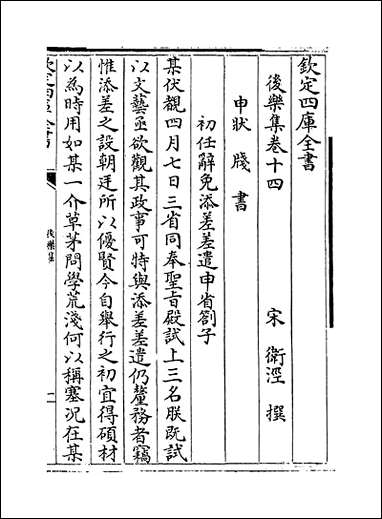 欽定四庫全書
後樂集卷十四
宋 衛涇 撰
申狀 牋 書
初任辭免添差差遣申省劄子
某伏覩四月七日三省同奉聖㫖殿試上三名朕既試
以文藝亟欲觀其政事可特與添差差遣仍釐務者竊
惟添差之設朝廷所以優賢今自舉行之初宜得碩材
以為時用如某一介草茅問學荒淺何以稱塞况在某
後樂集